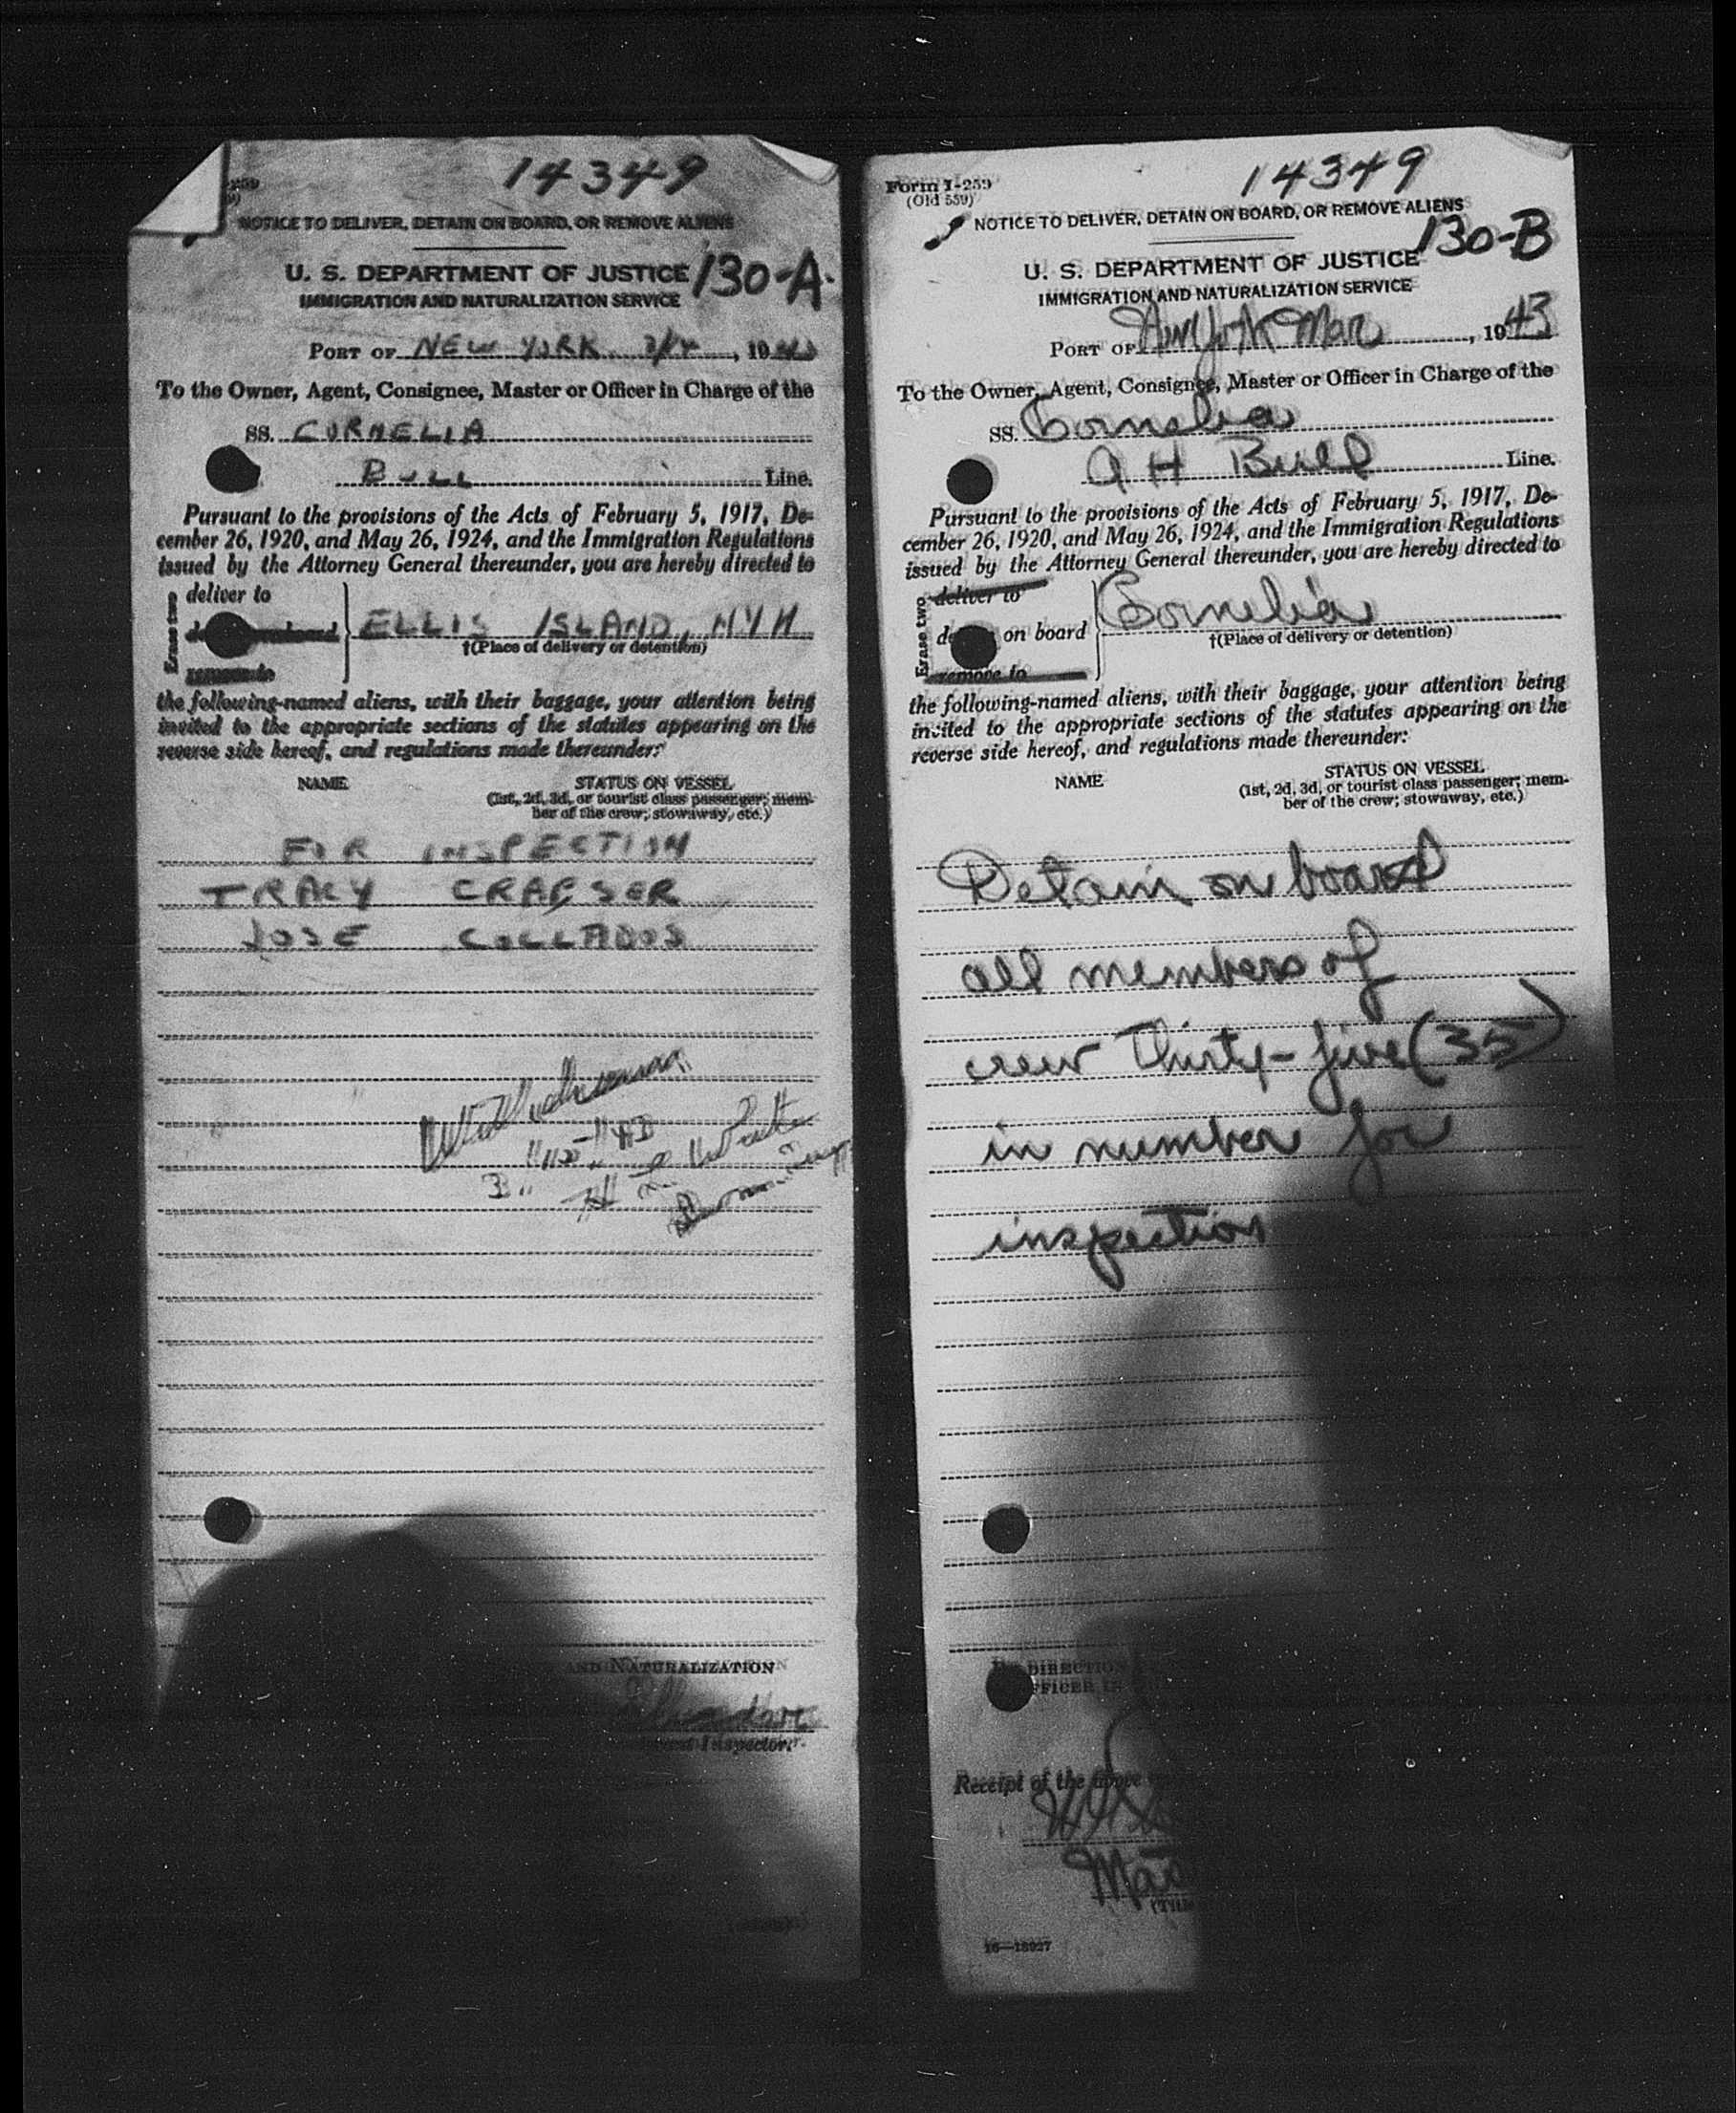 14349
NOTICE TO DELIVER, DETAIN ON BOARD, OR REMOVE ALIENS
U. S. DEPARTMENT OF JUSTICE 130-A
IMMIGRATION AND NATURALIZATION SERVICE
PORT OF NEW YORK, 19
To the Owner, Agent, Consignee, Master or Officer in Charge of the
SS. CORNELIA
BULL Line.
Pursuant to the provisions of the Acts of February 5, 1917, De-
cember 26, 1920, and May 26, 1924, and the Immigration Regulations
issued by the Attorney General thereunder, you are hereby directed to
deliver to
Erase two
ELLIS ISLAND, NYH
†(Place of delivery or detention)
the following-named aliens, with their baggage, your attention being
invited to the appropriate sections of the statutes appearing on the
reverse side hereof, and regulations made thereunder:
NAME STATUS ON VESSEL
(1st, 2d, 3d, or tourist class passenger; mem-
ber of the crew; stowaway, etc.)
FOR INSPECTION
TRACY
JOSE COLLADOS
AND NATURALIZATION
Inspector.
Form I-259
(Old 559)
14349
NOTICE TO DELIVER, DETAIN ON BOARD, OR REMOVE ALIENS
130-B
U. S. DEPARTMENT OF JUSTICE
IMMIGRATION AND NATURALIZATION SERVICE
PORT OF New York Mar, 1943
To the Owner, Agent, Consignee, Master or Officer in Charge of the
SS. Cornelia
A H Bull Line.
Pursuant to the provisions of the Acts of February 5, 1917, De-
cember 26, 1920, and May 26, 1924, and the Immigration Regulations
issued by the Attorney General thereunder, you are hereby directed to
deliver to
Erase two
on board
remove to
Cornelia
†(Place of delivery or detention)
the following-named aliens, with their baggage, your attention being
invited to the appropriate sections of the statutes appearing on the
reverse side hereof, and regulations made thereunder:
NAME STATUS ON VESSEL
(1st, 2d, 3d, or tourist class passenger; mem-
ber of the crew; stowaway, etc.)
Detain on board
all members of
crew Thirty-five (35)
in number for
inspection
DIRECTION
Receipt of the above
16—18927